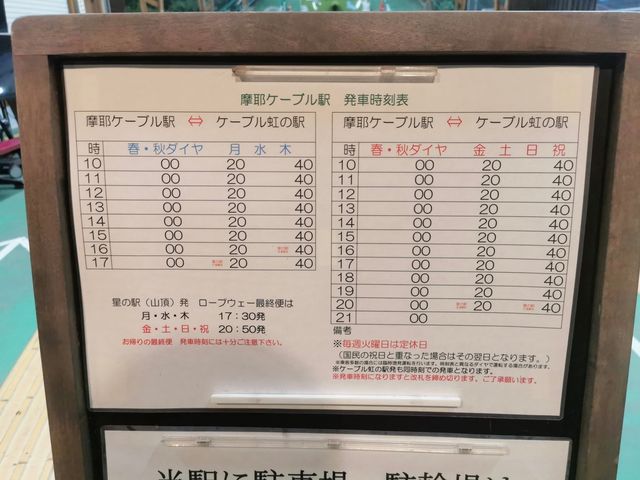 摩耶ケーブル駅 発車時刻表
摩耶ケーブル駅 ⇔ ケーブル虹の駅
時 春・秋ダイヤ 月 水 木
10 00 20 40
11 00 20 40
12 00 20 40
13 00 20 40
14 00 20 40
15 00 20 40
16 00 20 40
17 00 20 40
星の駅（山頂）発 ロープウェー最終便は
月・水・木 17：30発
金・土・日・祝 20：50発
お帰りの最終便 発車時刻には十分ご注意下さい。
摩耶ケーブル駅 ⇔ ケーブル虹の駅
時 春・秋ダイヤ 金 土 日 祝
10 00 20 40
11 00 20 40
12 00 20 40
13 00 20 40
14 00 20 40
15 00 20 40
16 00 20 40
17 00 20 40
18 00 20 40
19 00 20 40
20 00 20 40
21 00
備考
※毎週火曜日は定休日
（国民の祝日と重なった場合はその翌日となります。）
※乗客多数の場合には臨時増発運転を行います。時刻表と異なるダイヤで運転する場合があります。
※ケーブル虹の駅発も同時刻での発車となります。
※発車時刻になりますと改札を締め切ります。ご了承願います。
当駅に駐車場、駐輪場は